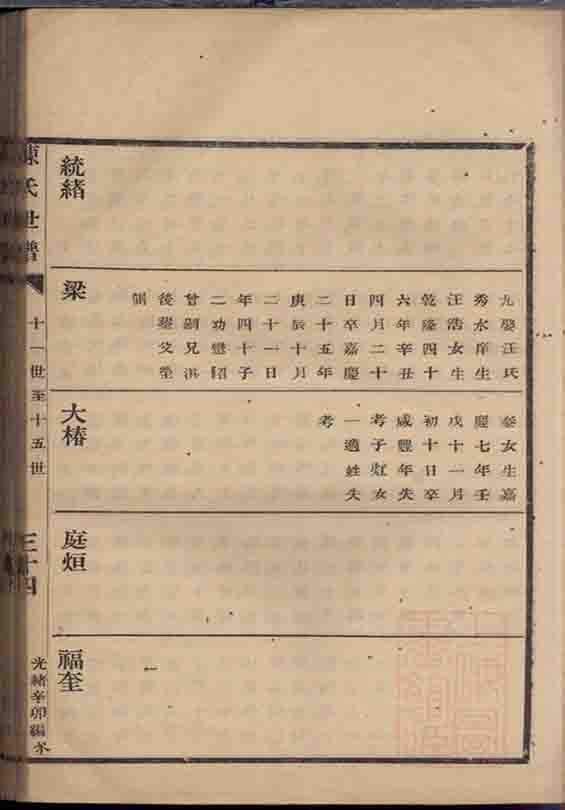 統緒
九娶汪氏
秀水庠生
汪浩女生
乾隆四十
六年辛丑
四月二十
日卒嘉慶
二十五年
庚辰十月
二十一日
年四十子
二功
曾嗣兄洪
後
梁
女生嘉
慶七年壬
戌十一月
初十日卒
咸豐年失
考子女
一適姓失
考
大椿
庭烜
福奎
陳氏世譜
十一世至十五世
三十四
光緒辛卯編